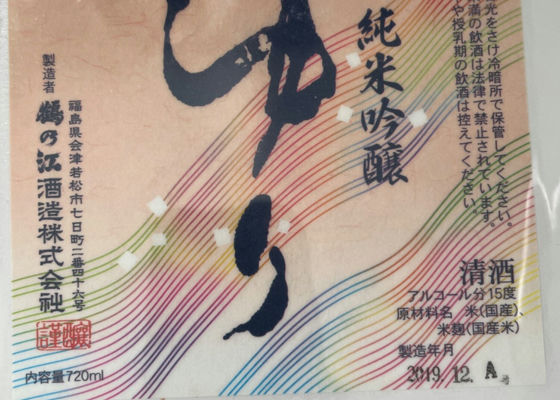 光をさけ冷暗所で保管してください。
満の飲酒は法律で禁止されています。
や授乳期の飲酒は控えてください。
純米吟醸
ゆり
製造者
鶴の江酒造株式会社
福島県会津若松市七日町二番四十六号
謹醸
内容量720ml
清酒
アルコール分15度
原材料名 米(国産)、
米麹(国産米)
製造年月
2019.12. A号